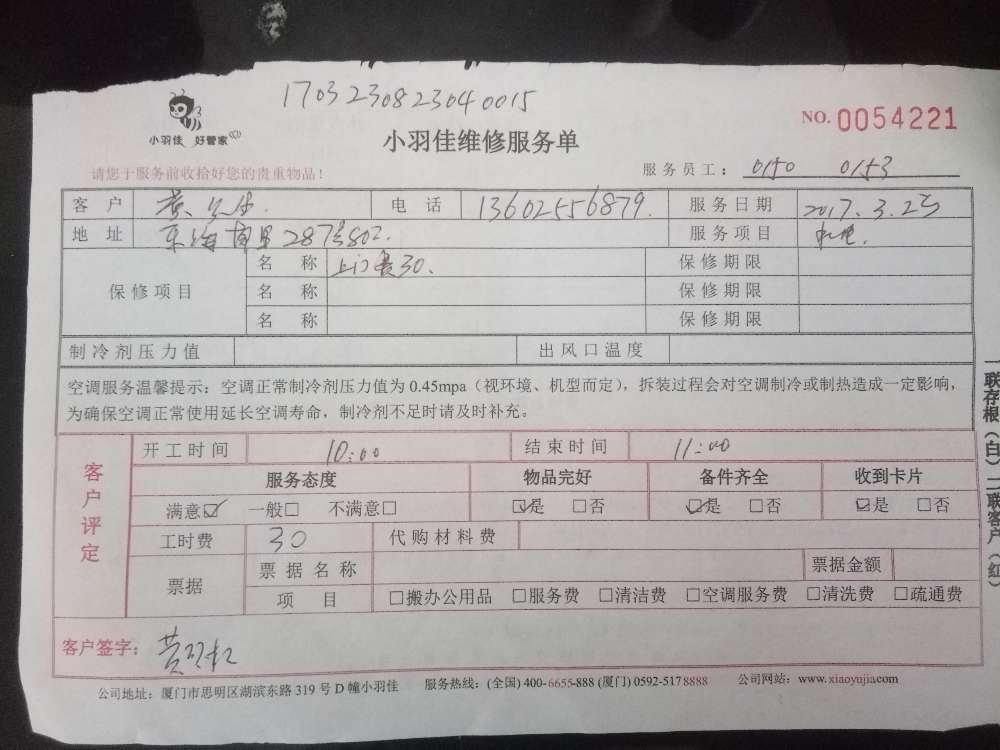 1703230823040015
小羽佳 好管家
小羽佳维修服务单
NO. 0054221
请您于服务前收拾好您的贵重物品！
服务员工： 0150 0153
客户 黄 电话 13602556879. 服务日期 2017.3.25
地址 东海 287号802. 服务项目
保修项目 名称 上门费30. 保修期限
名称 保修期限
名称 保修期限
制冷剂压力值 出风口温度
空调服务温馨提示：空调正常制冷剂压力值为0.45mpa（视环境、机型而定），拆装过程会对空调制冷或制热造成一定影响，
为确保空调正常使用延长空调寿命，制冷剂不足时请及时补充。
客户评定
开工时间 10:00 结束时间 11:00
服务态度 物品完好 备件齐全 收到卡片
满意☑ 一般□ 不满意□ ☑是 □否 ☑是 □否 ☑是 □否
工时费 30 代购材料费
票据 票据名称 票据金额
项目 □搬办公用品 □服务费 □清洁费 □空调服务费 □清洗费 □疏通费
客户签字： 黄
公司地址：厦门市思明区湖滨东路319号D幢小羽佳 服务热线：(全国) 400-6655-888 (厦门) 0592-5178888 公司网站：www.xiaoyujia.com
一联存根（白）二联客户（红）